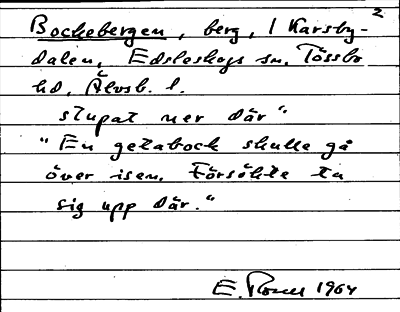 2
Bockebergen, berg, i Karsby-
dalen, Edsleskogs sn. Tössbo
hd, Älvsb. l.
stupat ner där"
"En getabock skulle gå
över isen. Försökte ta
sig upp där."
E. 1964